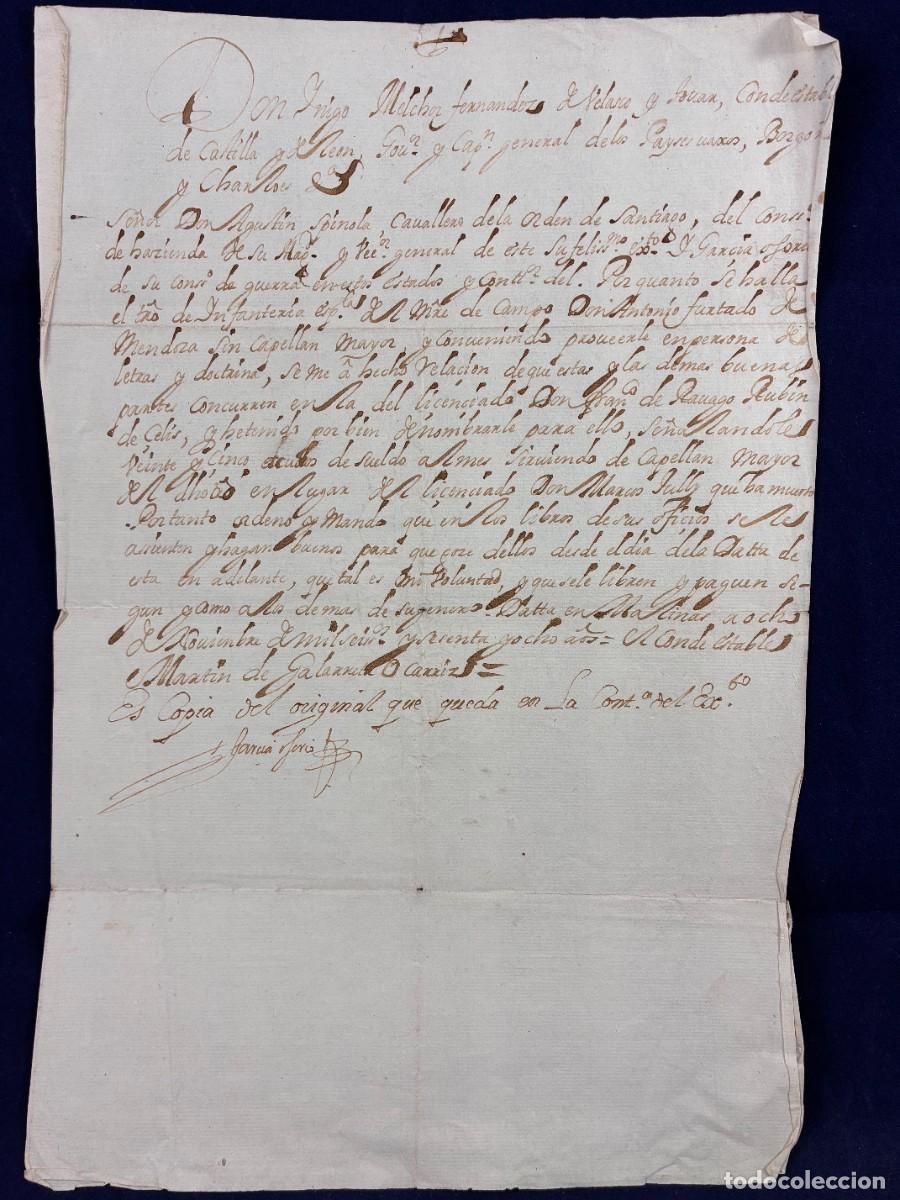 Don Yñigo Melchor fernandez de Velasco y Touar, Condestabl
de Castilla y de Leon, Gouor. y Capn. general de los Payses vaxos, Borgoña
y Charloes &a
Señor Don Agustin Spinola Cavallero dela orden de Santiago, del Conse
de hazienda de su Magd. y Veer. general de este su felissmo. exto. D. Garcia ossorio
de su conso. de guerra en estos estados y contor. del. Por quanto se halla
el tro de Infanteria espla. del Mre de Campo Don Antonio furtado de
Mendoza sin Capellan Mayor, y conveniendo proveerle en persona de
letras y doctrina, se me a hecho relacion de que estas y las demas buenas
partes concurren en la del licenciado Don franco. de Ravago Rubin
de Çelis, y he tenido por bien de nombrarle para ello, señalandole
veinte y cinco escudos de sueldo al mes sirviendo de Capellan Mayor
del dho tro en lugar del licenciado Don Marcos Tully que ha muerto
Por tanto ordeno y mando que en los libros de sus officios se le
asienten y hagan buenos para que goze dellos desde el dia dela Datta de
esta en adelante, que tal es mi voluntad, y que se le libren y paguen se
gun y como a los demas de su genero. Datta en Malinas a ocho
de Noviembre de mil seisos. y sesenta y ocho años = el Condestable
Martin de Galarreta Ocariz =
Es Copia del original que queda en La Conta. del Exto.
Garcia osorio
todocoleccion